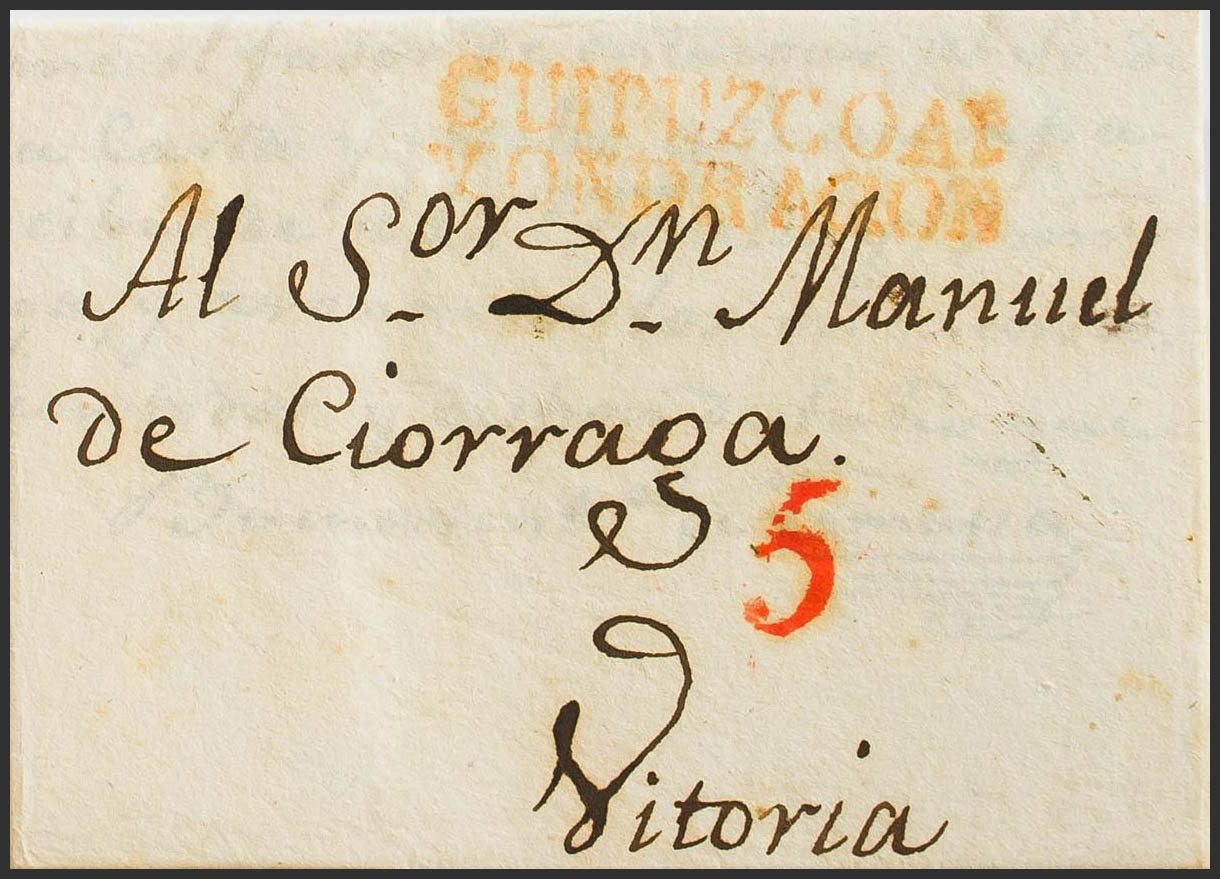 GUIPUZCOAL
MONDRAGON
Al S.or D.n Manuel
de Ciorraga.
5
Vitoria